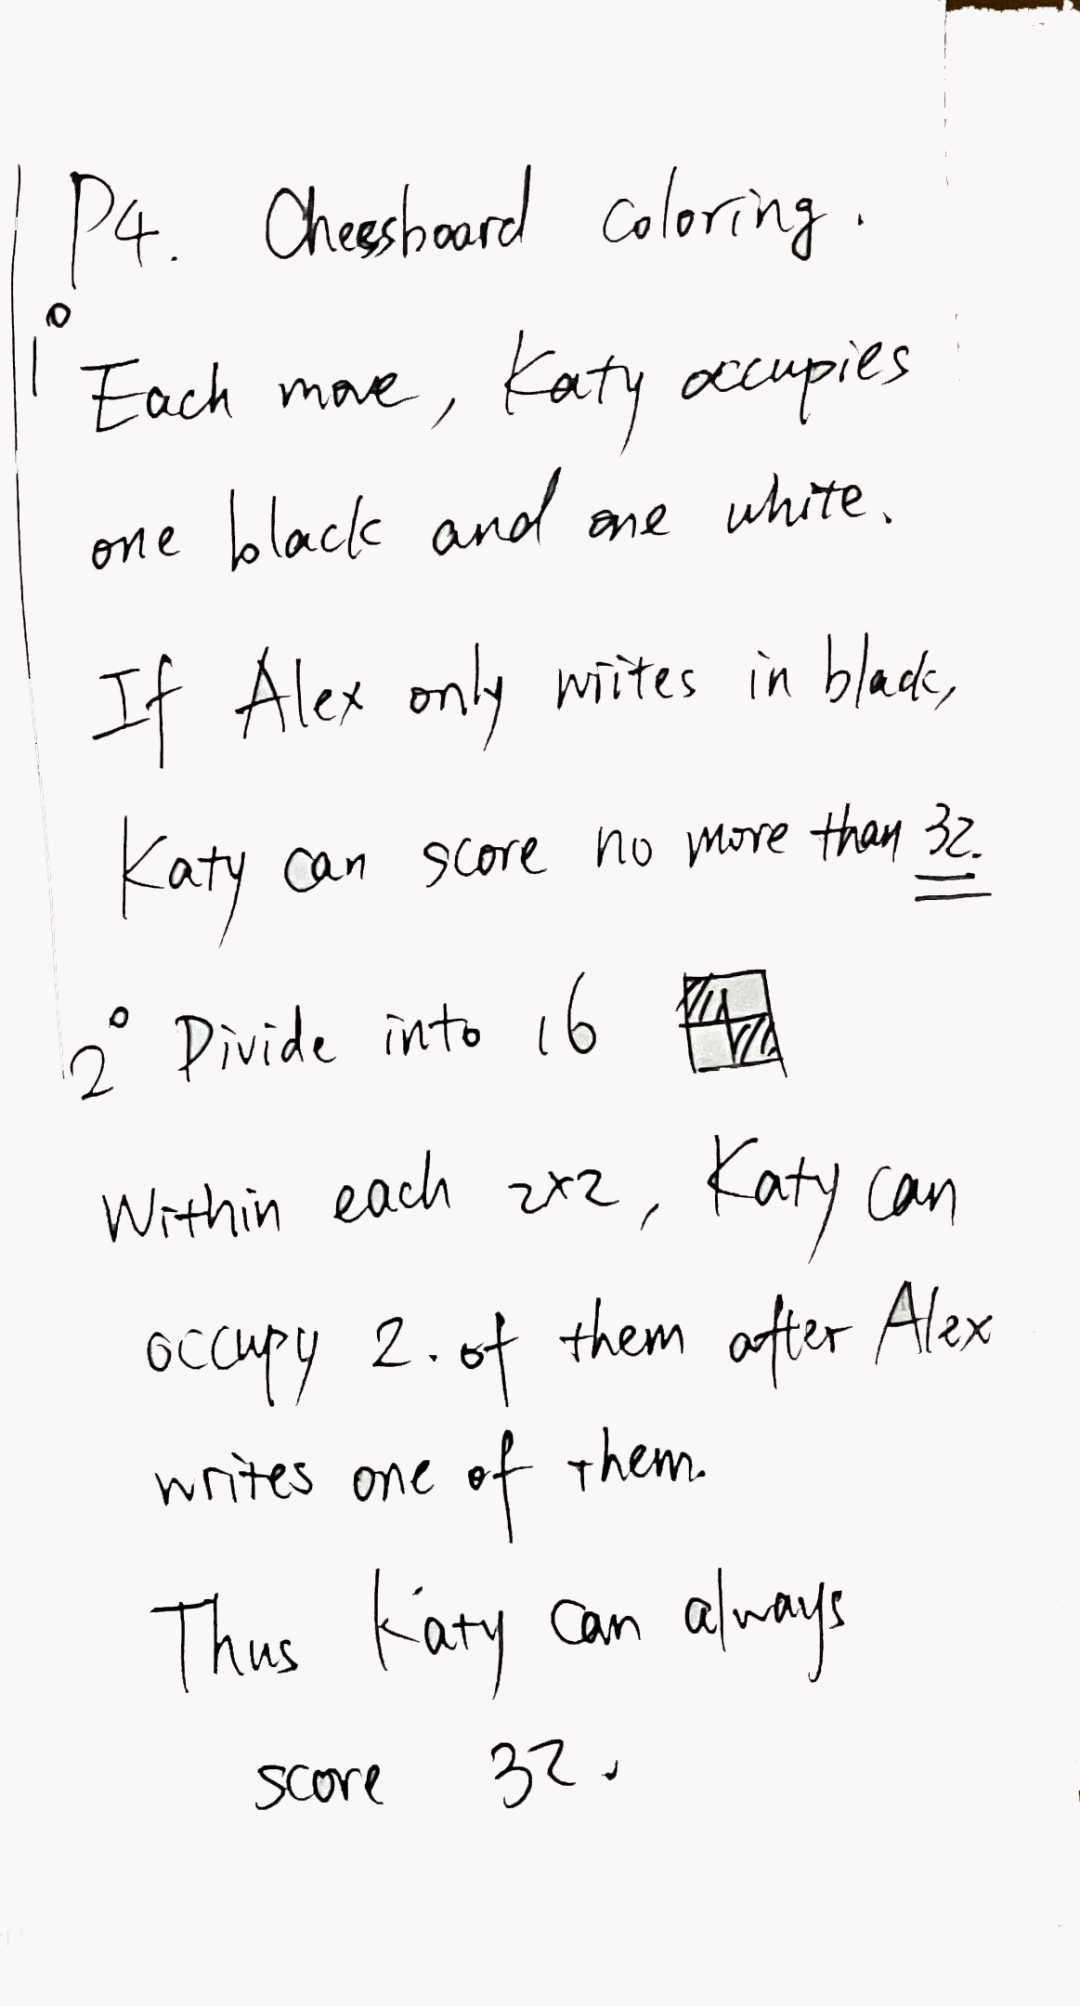 P4. Chessboard coloring.
1° Each move, Katy occupies
one black and one white.
If Alex only writes in black,
Katy can score no more than 32.
2° Divide into 16
Within each 2x2, Katy can
occupy 2. of them after Alex
writes one of them.
Thus Katy can always
score 32.